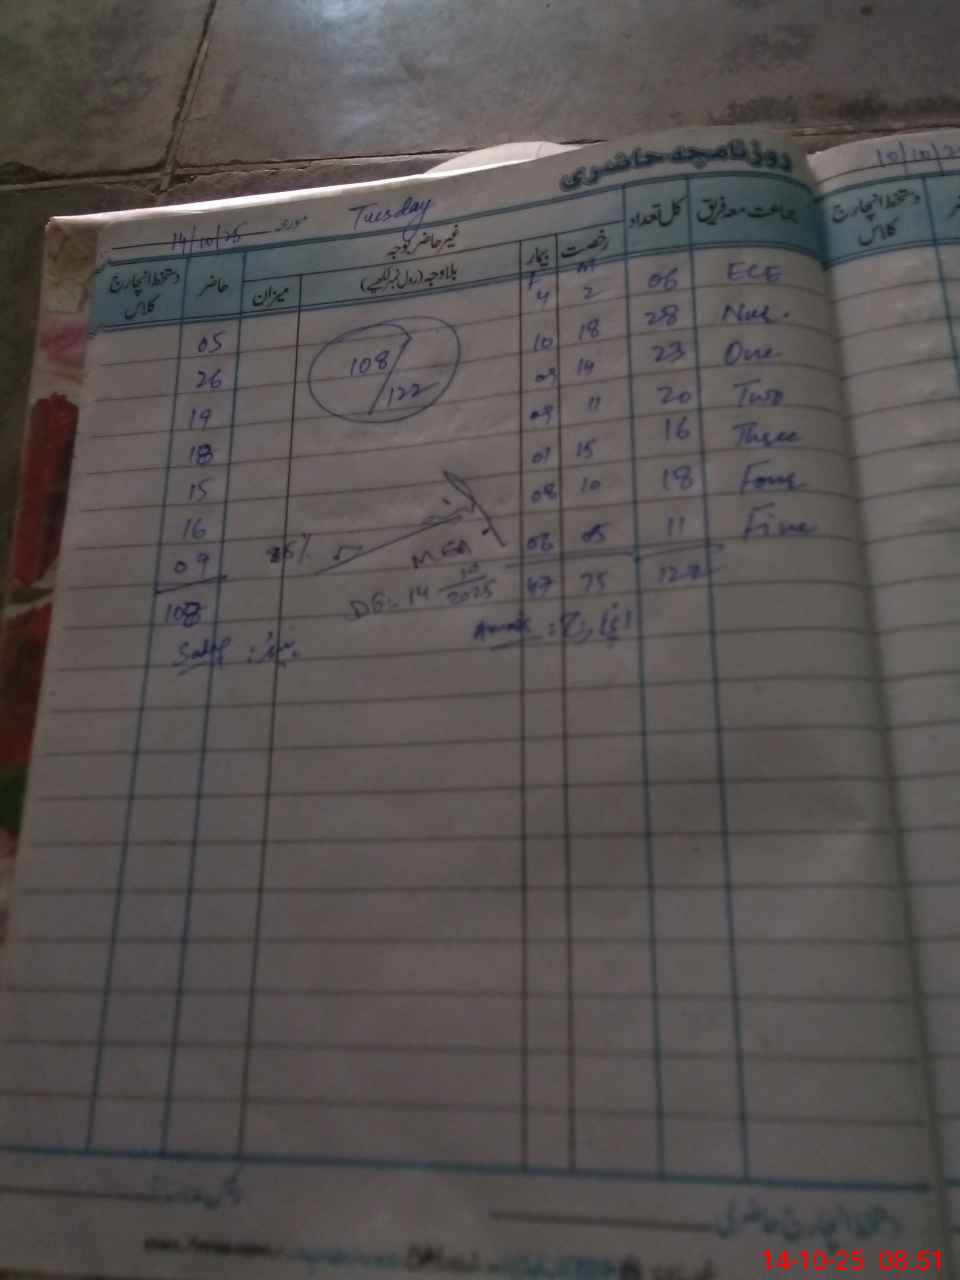 روزنامچہ حاضری
10/10/2
14/10/25 مورخہ Tuesday
جماعت معہ فریق کل تعداد رخصت بیمار غیر حاضر بوجہ حاضر دستخط انچارج کلاس
بلاوجہ (رول نمبر لکھیے) میزان
دستخط انچارج کلاس
M F
ECE 06 2 4 05
Nur. 28 18 10 26
One 23 14 09 19
Two 20 11 09 18
Three 16 15 01 15
Four 18 10 08 16
Five 11 05 06 09
122 75 47 108
108/122
MEA
DG. 14 10/2025
دستخط انچارج حاضری
14-10-25 08:51